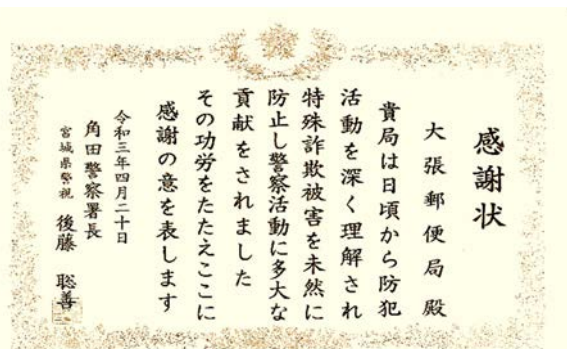 感謝状
大張郵便局殿
貴局は日頃から防犯
活動を深く理解され
特殊詐欺被害を未然に
防止し警察活動に多大な
貢献をされました
その功労をたたえここに
感謝の意を表します
令和三年四月二十日
角田警察署長
宮城県警視 後藤 聡善